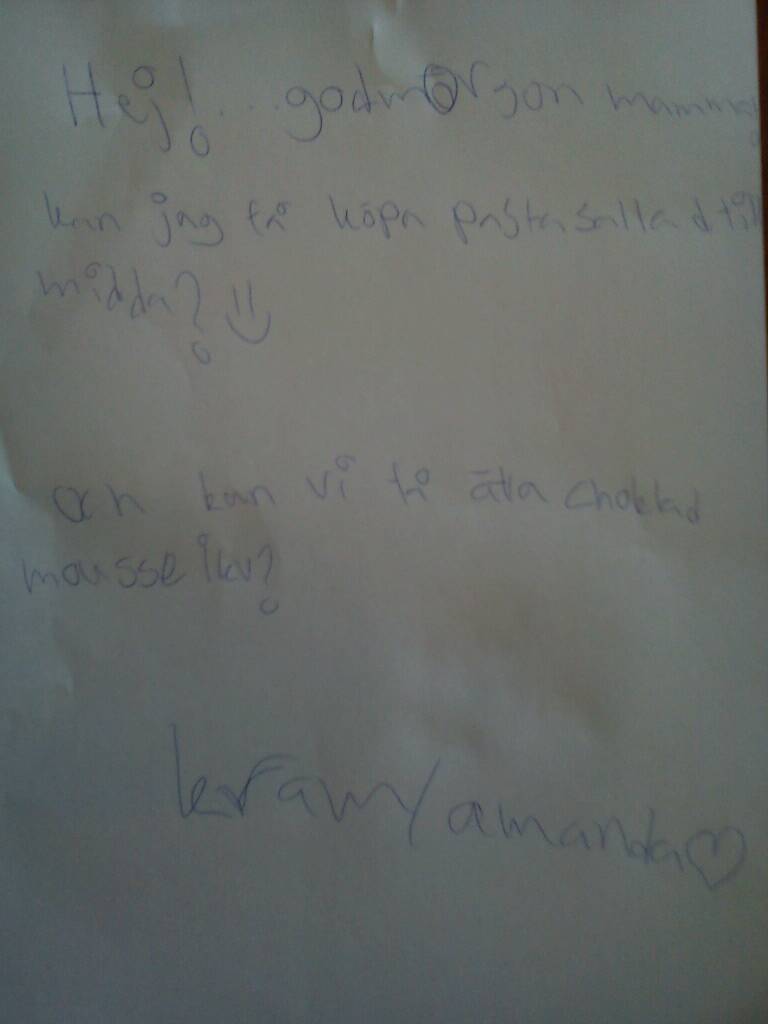 Hej!...godmorgon mamma
kan jag få köpa pastasallad till
midda? =)
och kan vi få äta choklad
mousse ikv?
kram/amanda♡